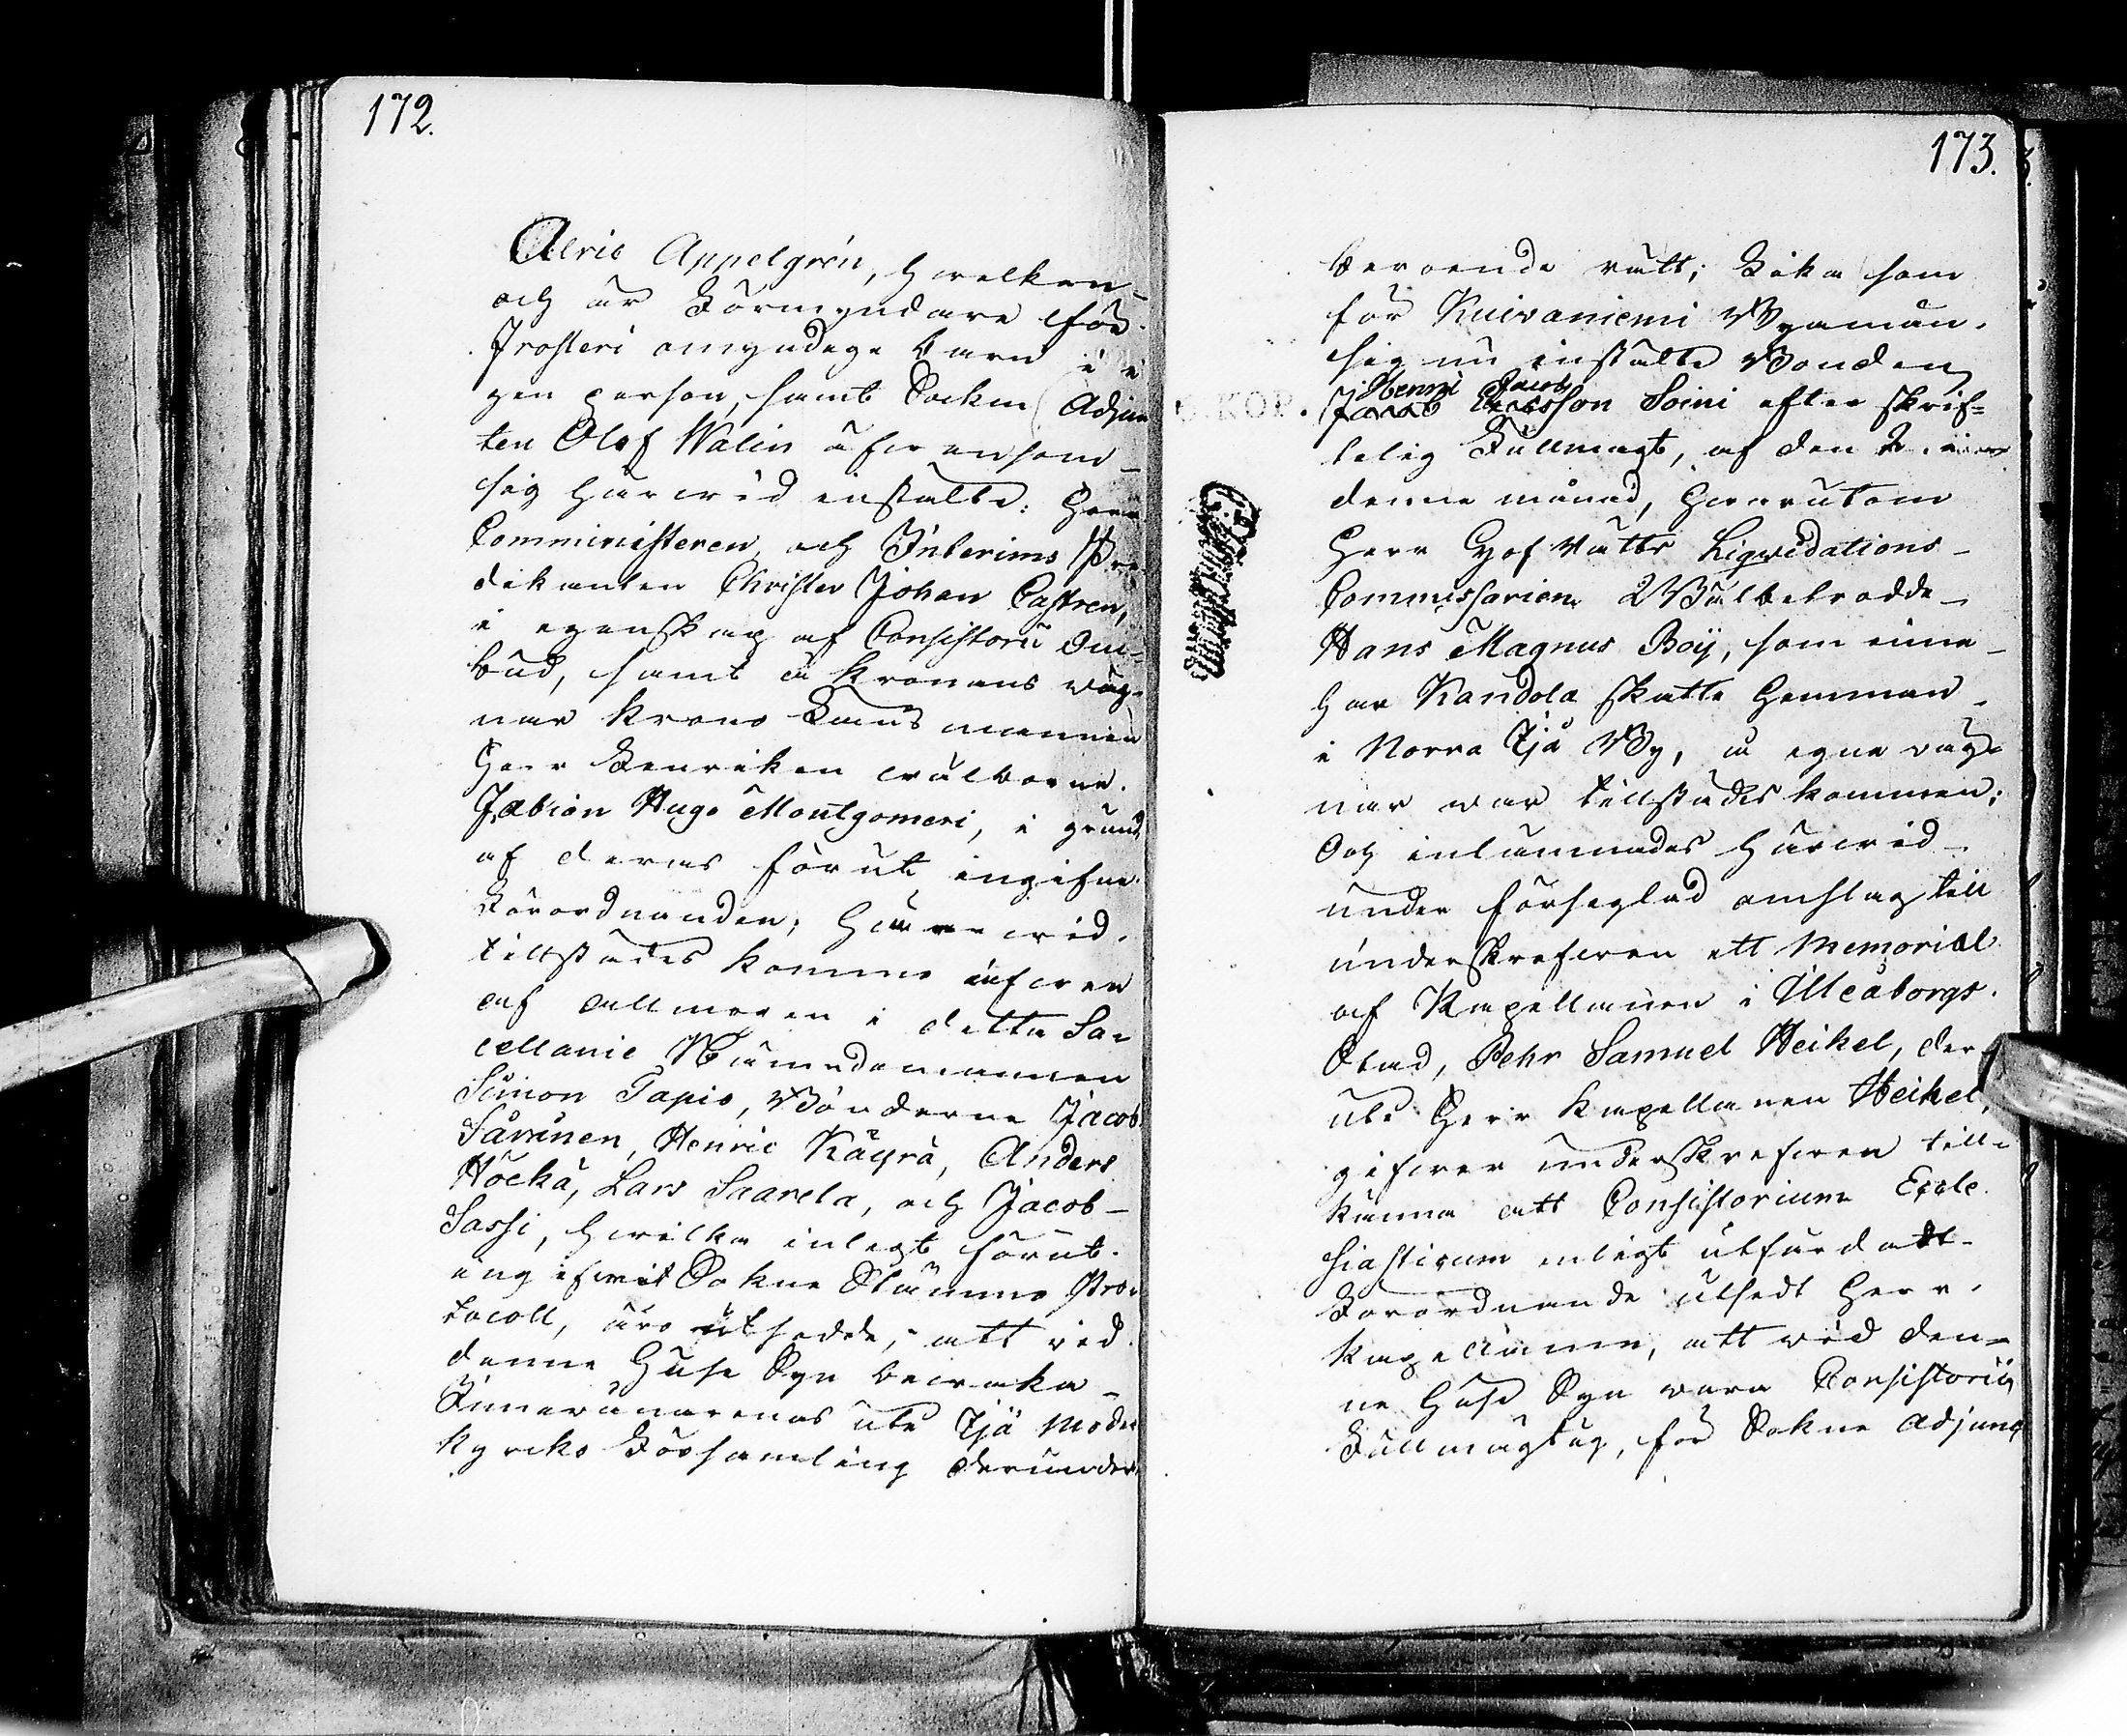 172.
Ulric Appelgrén, hvilken
och är Förmyndare för
Frosteri omyndige barn i e
gen person, samt Sockne Adjunc
ten Olof Walin äfven som
sig härvid instälte. Herr
Comministeren och Interims Pre
dikanten Christer Johan Castren,
i egenskap af Consistorii Om-
bud, samt å Kronans väg-
nar Krono Länsmannen
Herr Fenriken välborne
Fabian Hugo Montgomeri, i grund
af deras förut ingifne
Förordnanden; Härvid
tillstädes kommo äfven
af allmogen i detta Sa-
cellanie Nämndemannen
Simon Tapio, Bönderne Jacob
Sävinen, Henric Käyrä, Anders
Höckä, Lars Saarela, och Jacob
Sassi, hvilka enligt förut
ingifvit Sokne Stämmo Pro-
tocoll, äro utsedde, att vid
denne Huse Syn bevaka
Innevånarenas uti Ijå Moder
kyrko Församling derunder
173.
beroende rätt; Lika som
för Kuivaniemi Byamän
sig nu instälte Bonden
Henric Jacob
Jacob Ericsson Soini efter skrif-
telig Fullmagt, af den 2 i
denne månad, Hvarutom
Herr Hof Rätts Liqvidations
Commissarien Wälbetrodde
Hans Magnus Boij, som inne
har Kandola skatte Hemman
i Norra Ijå By, å egne väg-
nar var tillstädes kommen;
Och inlämnades härvid
under förseglad omslag till
underskrefven ett Memorial
af Kapellanen i Uleåborgs
Stad, Pehr Samuel Heikel, der
uti Herr Kapellanen Heikel,
gifver underskrefven till-
känna att Consistorium Eccle
siasticum enligt utfärdadt
Förordnande utsedt Herr
Kapellanen, att vid den-
ne Huse Syn vara Consistorii
Fullmägtig, för Sokne Adjunc